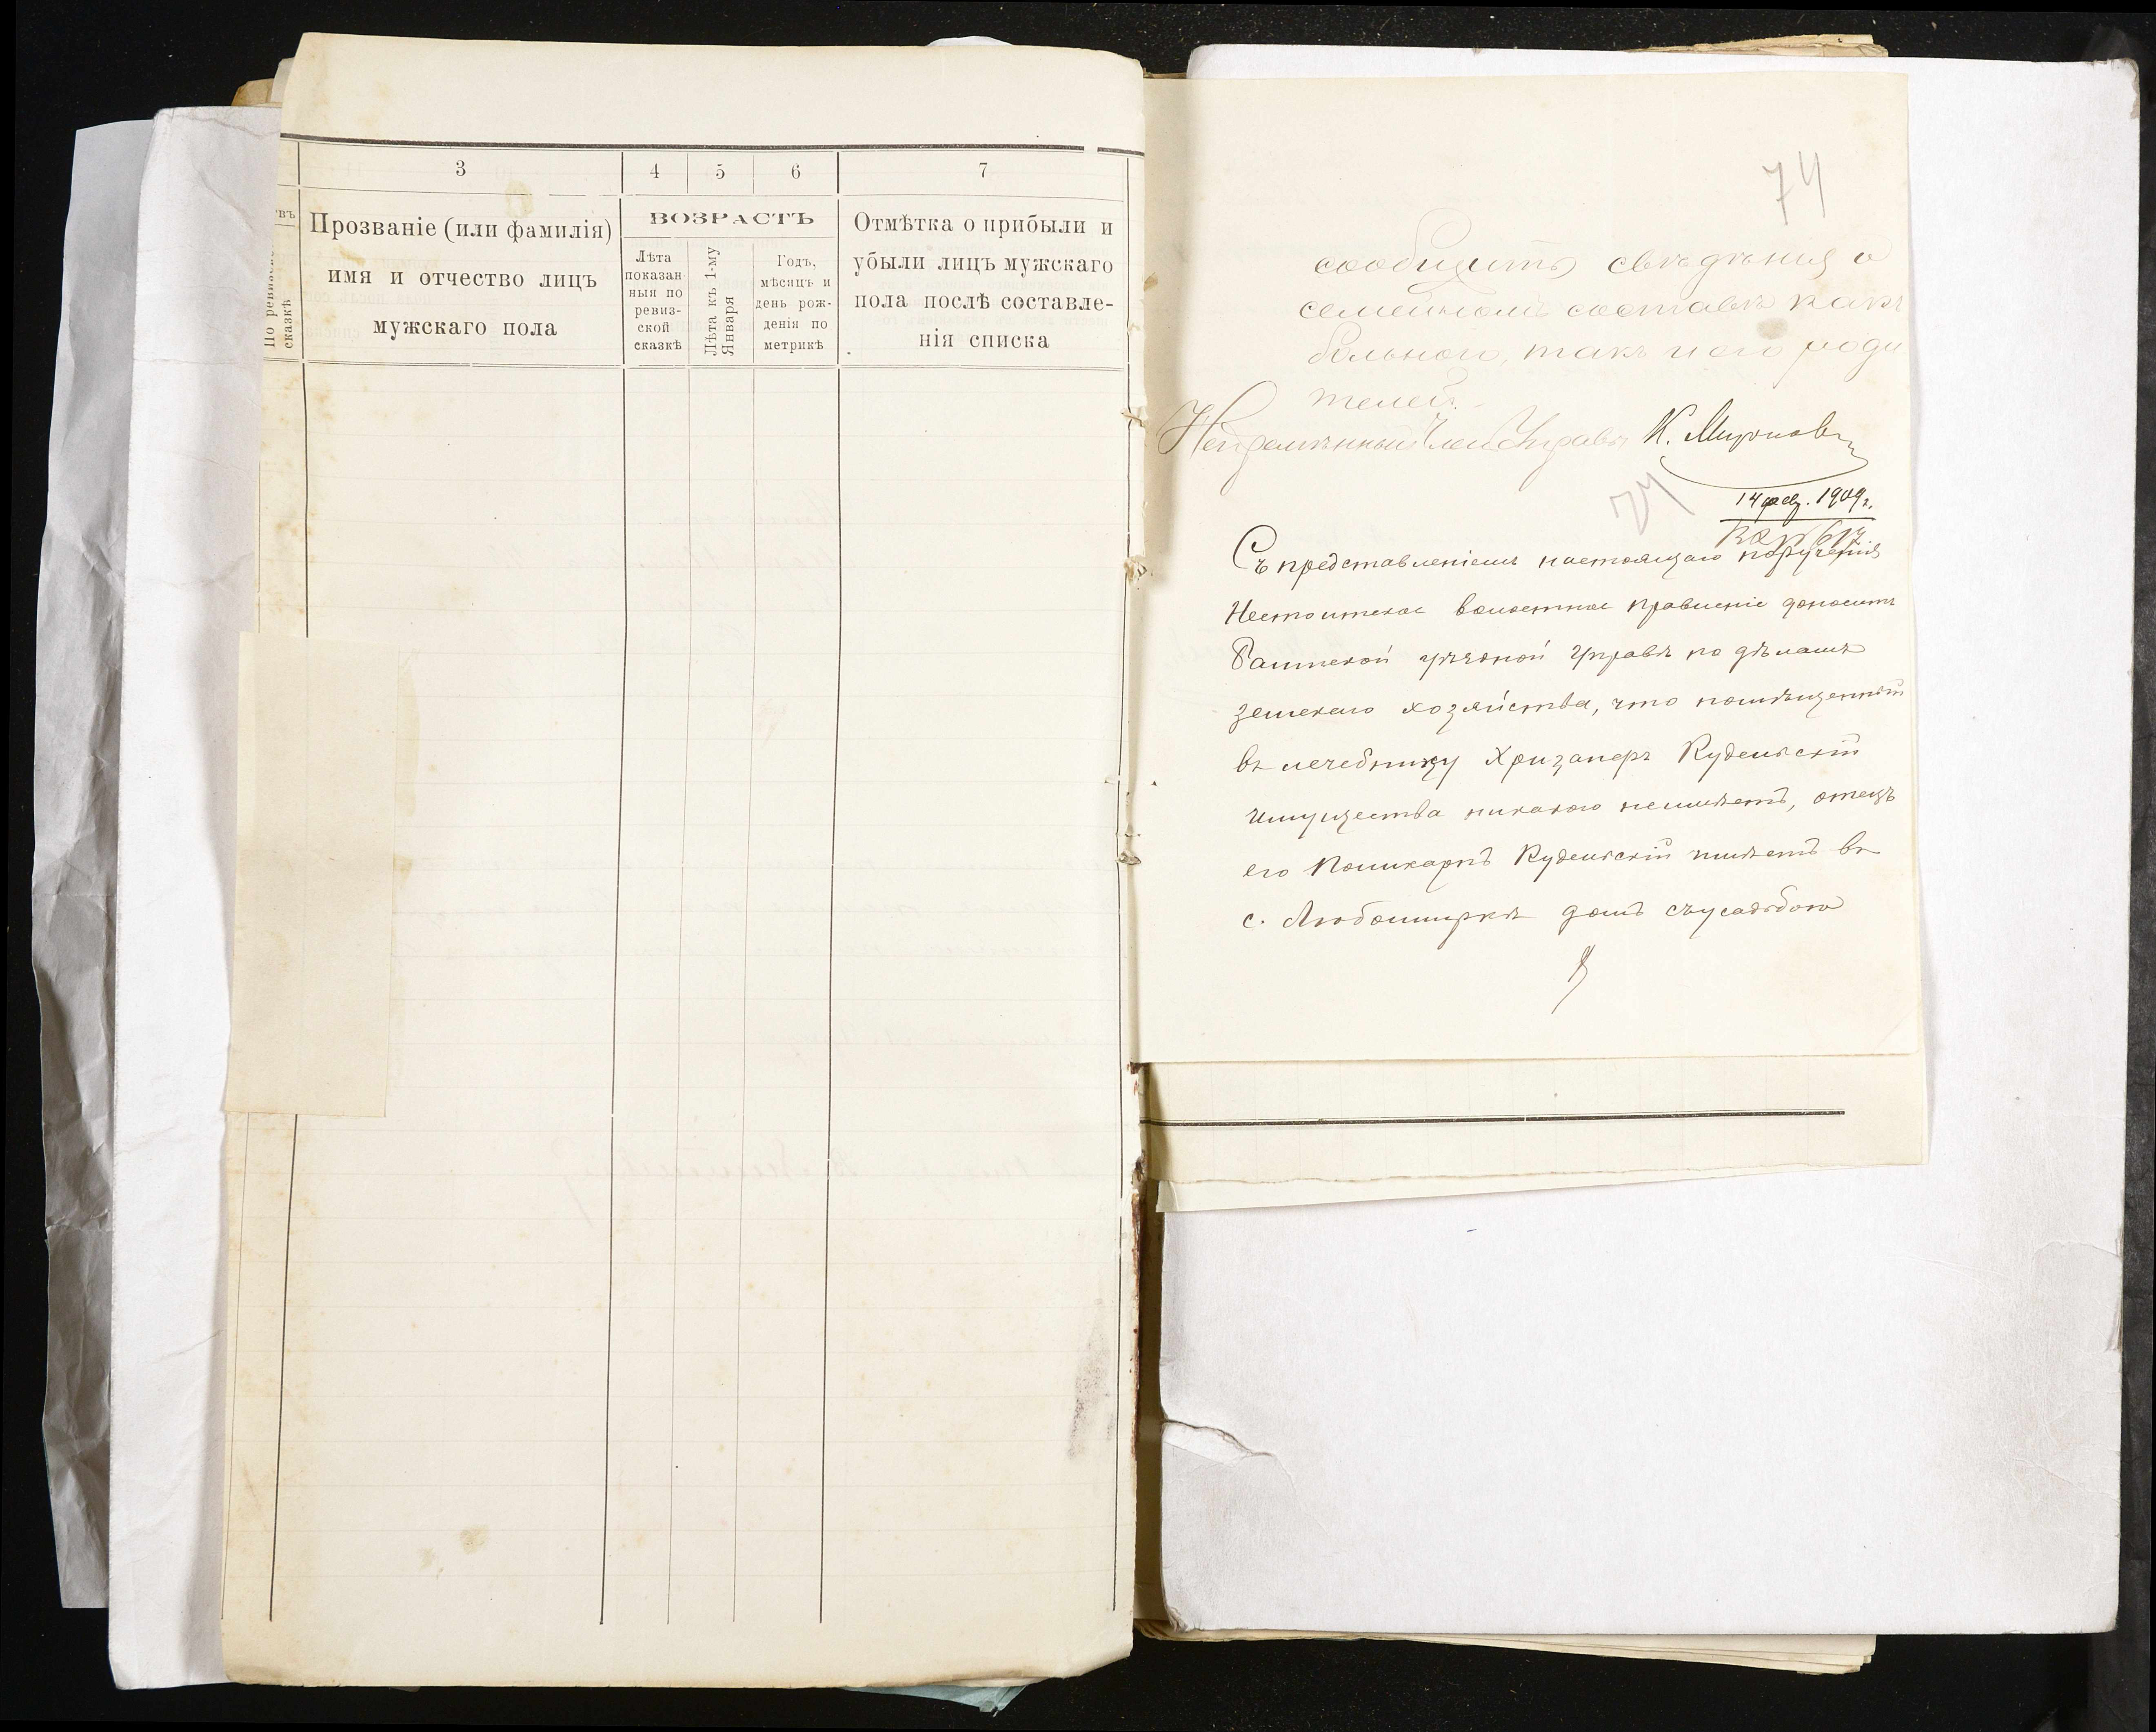 3 4 5 6 7
Прозваніе (или фамилія)
имя и отчество лицъ
мужскаго пола
ВОЗРАСТЪ
Лѣта
показан-
ныя по
ревиз-
ской
сказкѣ
Лѣта къ 1-му
Января
Годъ,
мѣсяцъ и
день рож-
денія по
метрикѣ
Отмѣтка о прибыли и
убыли лицъ мужскаго
пола послѣ составле-
нія списка
въ
По ревизской
сказкѣ
74
сообщить свѣдѣнія о
семейномъ составѣ какъ
больного, такъ и его роди
телей.
Непремѣнный Членъ Управы К. Мироновъ
74
14 фев. 1909 г.
Съ представленіемъ настоящаго порученія
волостное правленіе доноситъ
уѣздной Управѣ по дѣламъ
земскаго хозяйства, что помѣщенный
въ лечебницу Хризанеръ Кудельскій
имущества никакого неимѣетъ, отецъ
его Поликарпъ Кудельскій имѣетъ въ
с. Любомиркѣ домъ съусадьбою